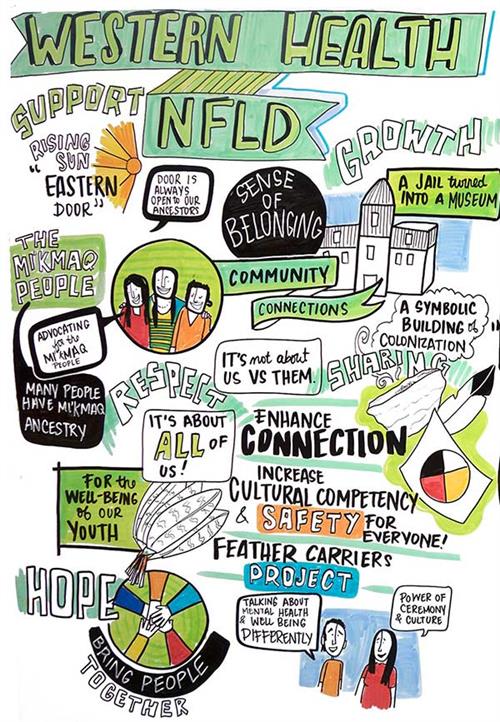 WESTERN HEALTH
NFLD
SUPPORT
RISING
SUN
"EASTERN
DOOR"
DOOR IS
ALWAYS
OPEN to OUR
ANCESTORS
SENSE
OF
BELONGING
GROWTH
A JAIL turned
INTO A MUSEUM
THE
MI'KMAQ
PEOPLE
COMMUNITY
CONNECTIONS
A SYMBOLIC
BUILDING of
COLONIZATION
ADVOCATING
for the
MI'KMAQ
PEOPLE
MANY PEOPLE
HAVE MI'KMAQ
ANCESTRY
IT'S not about
US VS THEM.
SHARING
RESPECT
IT'S ABOUT
ALL OF
US!
ENHANCE
CONNECTION
INCREASE
CULTURAL COMPETENCY
& SAFETY FOR
EVERYONE!
FOR the
WELL-BEING
of OUR
YOUTH
FEATHER CARRIERS
PROJECT
HOPE
BRING PEOPLE
TOGETHER
TALKING ABOUT
MENTAL HEALTH
& WELL BEING
DIFFERENTLY
POWER OF
CEREMONY
& CULTURE